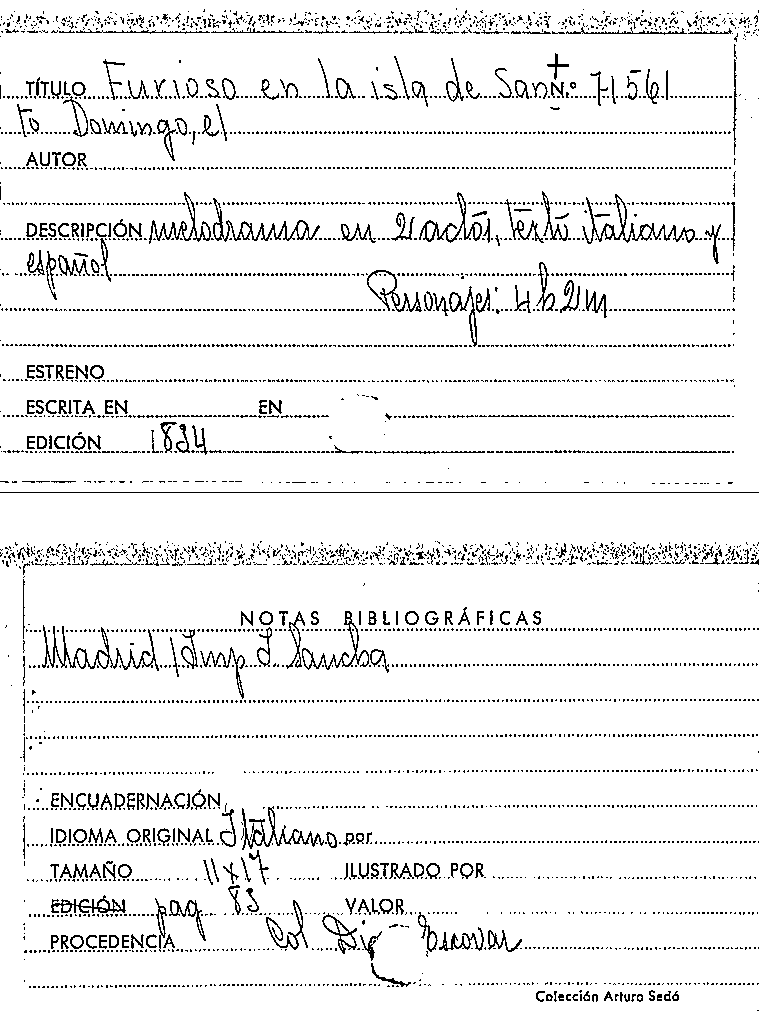 TÍTULO Furioso en la isla de San N.º 71561
to Domingo, el
AUTOR
DESCRIPCIÓN melodrama en 2 actos, texto italiano y
español
Personajes: 4 h 2 m
ESTRENO
ESCRITA EN EN
EDICIÓN 1834
NOTAS BIBLIOGRÁFICAS
Madrid / Imp I Sancha
ENCUADERNACIÓN
IDIOMA ORIGINAL Italiano por
TAMAÑO 11 x 17 ILUSTRADO POR
EDICIÓN pag 83 VALOR
PROCEDENCIA Col Escovar
Colección Arturo Sedó